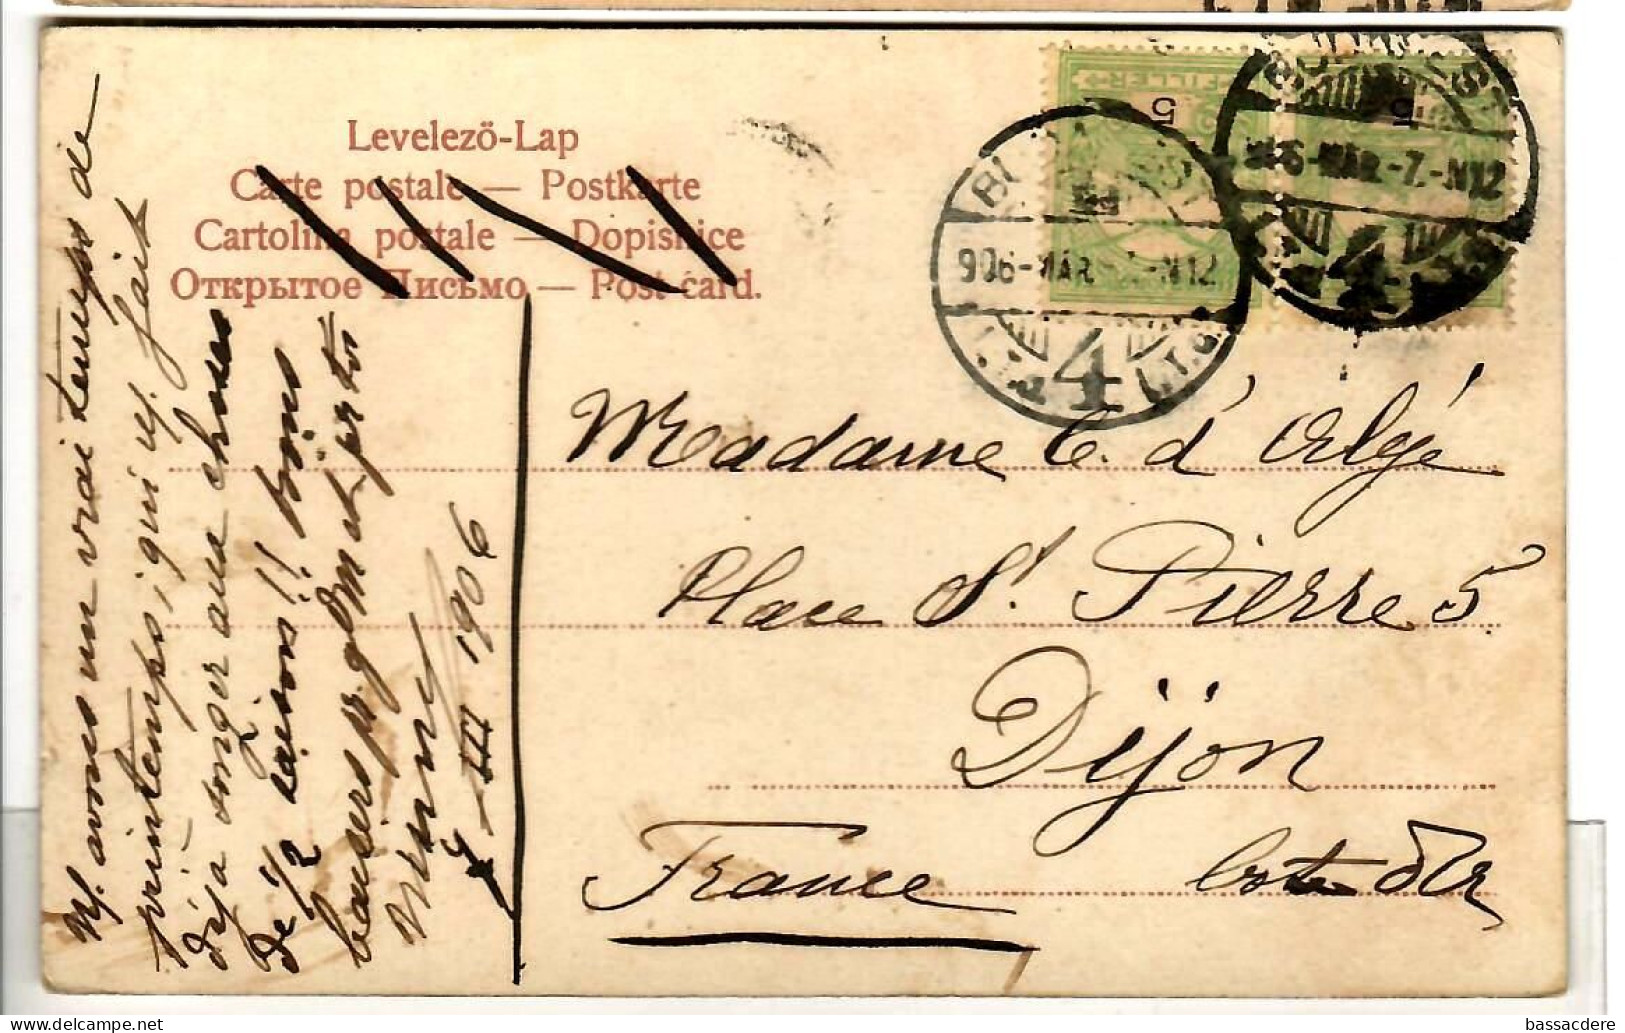 Levelező-Lap
Carte postale — Postkarte
Cartolina postale — Dopisnice
Открытое Письмо — Post-card.
FILLER
5
5
BUDAPEST
906-MÁR-7.-N12
4
BUDAPEST
906-MÁR-7.-N12
4
Madame C. d'Algé
Place St. Pierre 5
Dijon
France Cote d'Or
N. avons un vrai temps de
printemps, qui n. fait
déja songer aux choses
de 1/2 saisons!! bons
baisers
7 III 1906
bassacdere